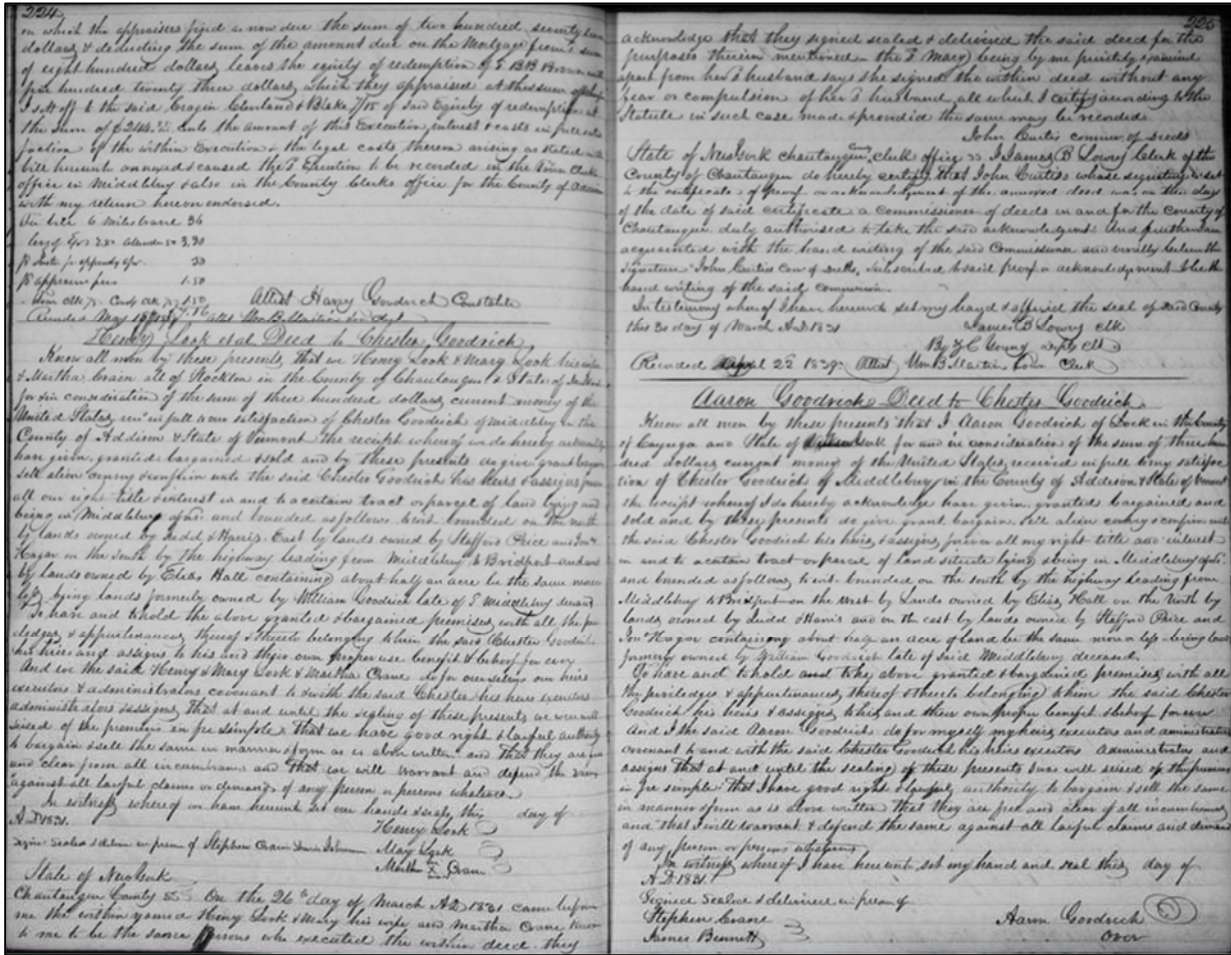 224
on which the appraisers find is now due the sum of two hundred seventy seven
dollars & deducting the sum of the amount due on the Mortgage from sum
of eight hundred dollars leaves the equity of redemption of B B Brown
five hundred twenty three dollars which they appraised at the sum
I sett off to the said Cragin Cleveland & Blake of said Equity of redemption at
the sum of the amount of this Execution, interest & costs in full satis
faction of the within Execution & the legal costs thereon arising as stated in
bill hereunto annexed & caused the Execution to be recorded in the Town Clerks
office in Middlebury & also in the County Clerks office for the County of Addison
with my return hereon endorsed.
6 Miles travel 36
appraisers fees 1.50
Attest Harry Goodrich Constable
Recorded May
Henry Look et al Deed to Chester Goodrich
Know all men by these presents, that we Henry Look & Mary Look his wife
& Martha Crain all of Stockton in the County of Chautauque & State of New York
for & in consideration of the sum of three hundred dollars current money of the
United States, in full to our satisfaction of Chester Goodrich of Middlebury in the
County of Addison & State of Vermont the receipt whereof we do hereby acknowledge
have given, granted bargained & sold and by these presents do give grant bargain
sell alien convey & confirm unto the said Chester Goodrich his heirs & assigns forever
all our right title & interest in and to a certain tract or parcel of land lying and
being in Middlebury and bounded as follows to wit bounded on the north
by lands owned by Ludd & Harris East by lands owned by Stafford Price and
Hagar on the South by the highway leading from Middlebury to Bridport and west
by lands owned by Elias Hall containing about half an acre be the same more
or less being lands formerly owned by William Goodrich late of Middlebury deceased
To have and to hold the above granted & bargained premises with all the priv
iledges & appurtenances thereof & thereto belonging to him the said Chester Goodrich
his heirs and assigns to his and their own proper use benefit & behoof for ever
And we the said Henry & Mary Look & Martha Crane do for ourselves our heirs
executors & administrators covenant to & with the said Chester his heirs executors
administrators & assigns, that at and until the sealing of these presents we were well
seized of the premises in fee simple that we have good right & lawful authority
to bargain & sell the same in manner & form as is above written and that they are free
and clear from all incumbrance and that we will warrant and defend the same
against all lawful claims or demands of any person or persons whatever.
In witness where of we have hereunto set our hands & seals, this day of
A.D 1831. Henry Look
Signed Sealed & deliv in presence of Stephen Crain Johnson Mary Look
Martha X Crane
State of New York
Chautauque County SS On the 26th day of March AD 1831 came before
me the within named Henry Look & Mary his wife and Martha Crane known
to me to be the same persons who executed the within deed they
225
acknowledge that they signed sealed & delivered the said deed for the
purposes therein mentioned & the Mary being by me privately examined
apart from her husband says she signed the within deed without any
fear or compulsion of her husband, all which I certify according to the
Statute in such case made & provided the same may be recorded.
John Curtis commr of deeds
State of New York Chautauque County clerk office ss I James B Lowry Clerk of the
County of Chautauque do hereby certify, that John Curtis whose signature is set
to the certificate of proof or acknowledgment of the annexed deed was on the day
of the date of said certificate a commissioner of deeds in and for the county of
Chautauque duly authorised to take the said acknowledgment And further I am
acquainted with the hand writing of the said Commissioner and verily believe the
signature "John Curtis Com of deeds, subscribed to said proof or acknowledgement to be the
hand writing of the said commissioner.
In testimony whereof I have hereunto set my hand & affixed the seal of said County
this 30 day of March A.D. 1831 James B Lowry Clk
By Young Depty Clk
Recorded April 22 1839 Attest Wm B Martin Town Clerk
Aaron Goodrich Deed to Chester Goodrich
Know all men by these presents that I Aaron Goodrich of Lock in the County
of Cayuga and State of York for and in consideration of the sum of three hun
dred dollars, current money of the United States, received in full to my satisfac
tion of Chester Goodrich of Middlebury, in the County of Addison & State of Vermont
the receipt whereof I do hereby acknowledge have given, granted bargained and
sold and by these presents do give grant bargain, sell alien convey & confirm unto
the said Chester Goodrich his heirs & assigns, forever all my right title and interest
in and to a certain tract or parcel of land situate lying & being in Middlebury
and bounded as follows, to wit bounded on the south by the highway leading from
Middlebury to Bridport on the West by Lands owned by Elias Hall on the North by
lands, owned by Ludd & Harris and on the east by lands owned by Stafford Price and
Hagar containing about half an acre of land be the same more or less being land
formerly owned by William Goodrich late of said Middlebury deceased.
To have and to hold the above granted & bargained premises with all
the priviledges & appurtenances, thereof & thereto belonging to him the said Chester
Goodrich his heirs & assigns to his and their own proper benefit & behoof for ever
And I the said Aaron Goodrich do for myself my heirs executors and administrators
covenant to and with the said Chester Goodrich his heirs executors administrators and
assigns that at and until the sealing of these presents I was well seised of the premises
in fee simple that I have good right & lawful authority to bargain & sell the same
in manner & form as is above written that they are free and clear of all incumbrance
and that I will warrant & defend the same against all lawful claims and demands
of any person or persons whatever
In witness where of I have hereunto set my hand and seal this, day of
A.D. 1831.
Signed Sealed & delivered in presence of
Stephen Crane Aaron Goodrich
James Bennett Over